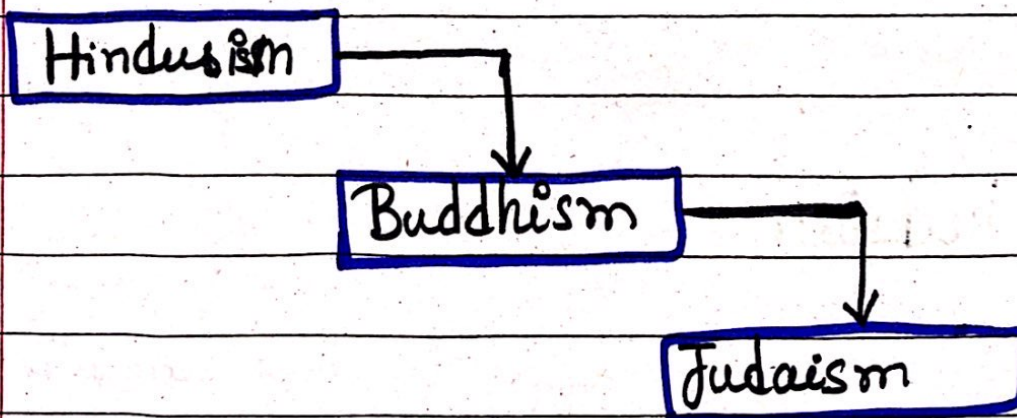 Hinduism
Buddhism
Judaism